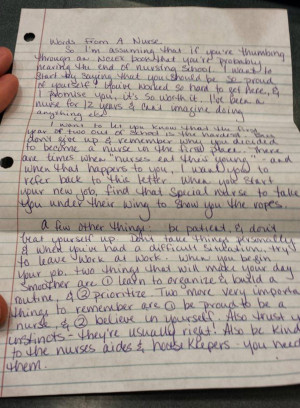 Words From A Nurse
So I'm assuming that if you're thumbing
through an NCLEX book that you're probably
nearing the end of nursing school. I want to
start by saying that you should be so proud
of yourself! You've worked so hard to get here, &
I promise you, it's so worth it. I've been a
nurse for 12 years & can't imagine doing
anything else.
I want to let you know that the first
year or two out of school is the hardest.
don't give up & remember why you decided
to become a nurse in the first place. There
are times when "nurses eat their young" - and
when that happens to you, I want you to
refer back to this letter. When you start
your new job, find that special nurse to take
you under their wing to show you the ropes.
A few other things: be patient, & don't
beat yourself up. Don't take things personally
& when you've had a difficult situation, try
to leave work at work. When you begin
your job, two things that will make your day
smoother are ① learn to organize & build a
routine, & ② prioritize. Two more very important
things to remember are ① be proud to be a
nurse, & ② believe in yourself. Also trust your
instincts - they're usually right! Also be kind
to the nurses aides & housekeepers - you need
them.